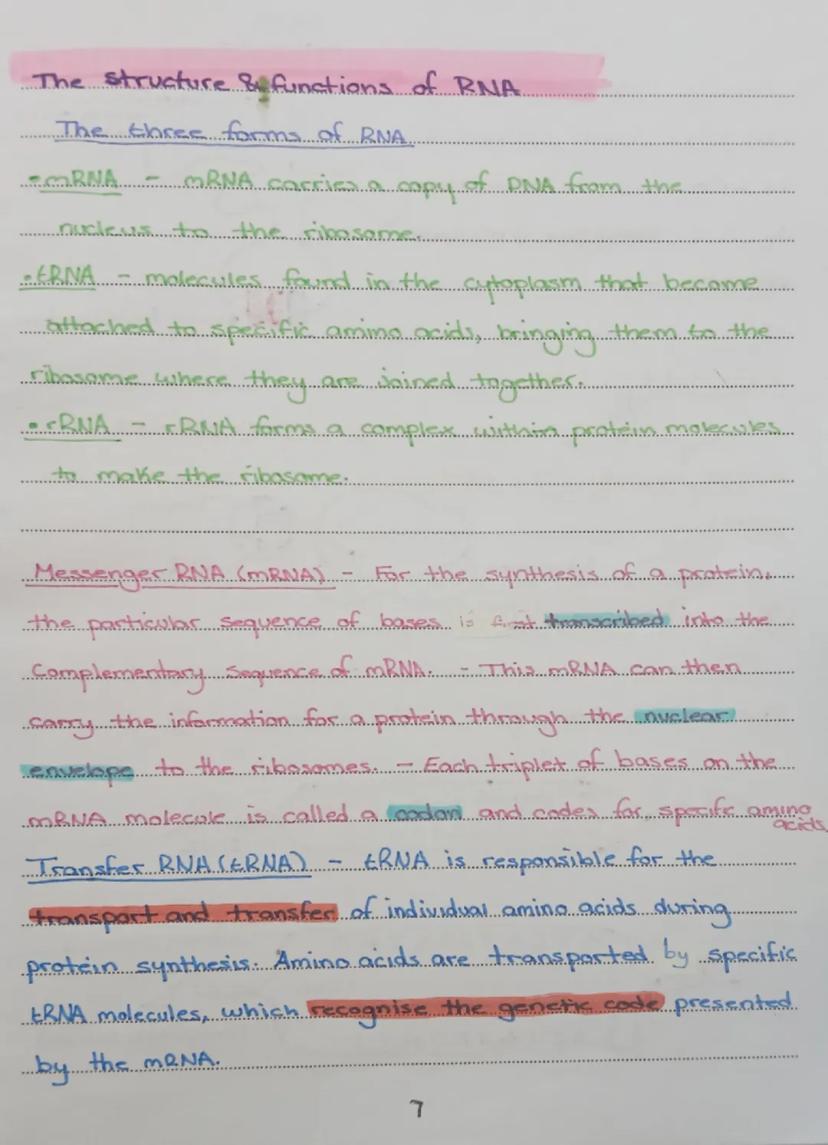 The structure & functions of RNA
The three forms of RNA
• mRNA - mRNA carries a copy of DNA from the
nucleus to the ribosome.
• tRNA - molecules found in the cytoplasm that become
attached to specific amino acids, bringing them to the
ribosome where they are joined together.
• rRNA - rRNA forms a complex within protein molecules
to make the ribosome.
Messenger RNA (mRNA) - For the synthesis of a protein,
the particular sequence of bases is first transcribed into the
complementary sequence of mRNA. - This mRNA can then
carry the information for a protein through the nuclear
envelope to the ribosomes. - Each triplet of bases on the
mRNA molecule is called a codon and codes for specific amino
acids.
Transfer RNA (tRNA) - tRNA is responsible for the
transport and transfer of individual amino acids during
protein synthesis. Amino acids are transported by specific
tRNA molecules, which recognise the genetic code presented
by the mRNA.
7